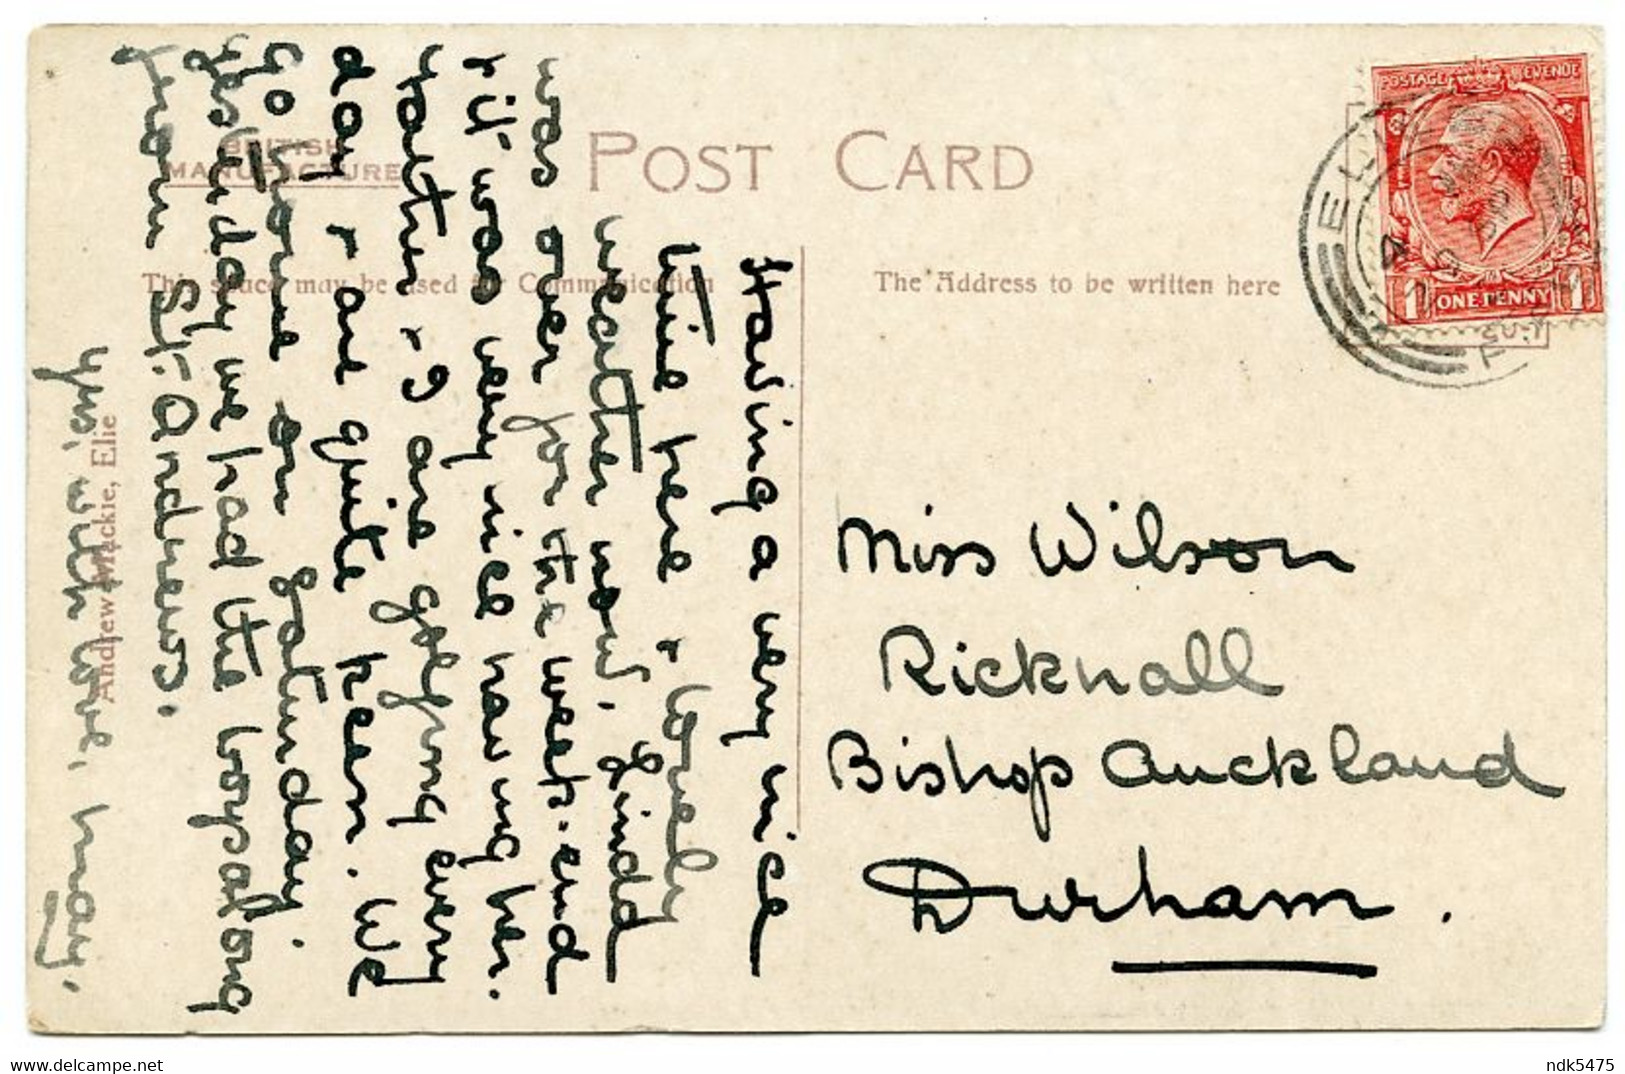 BRITISH
MANUFACTURE
POST CARD
This space may be used for Communication
The Address to be written here
POSTAGE REVENUE
ONE PENNY
1
1
Having a very nice
time here & lovely
weather now.
was over for the week-end
& it was very nice having her.
& I are golfing every
day & are quite keen. We
go home on Saturday.
yesterday we had the
from St. Andrews.
yrs, with love, May.
Andrew Mackie, Elie
Miss Wilson
Ricknall
Bishop Auckland
Durham.
www.delcampe.net
ndk5475